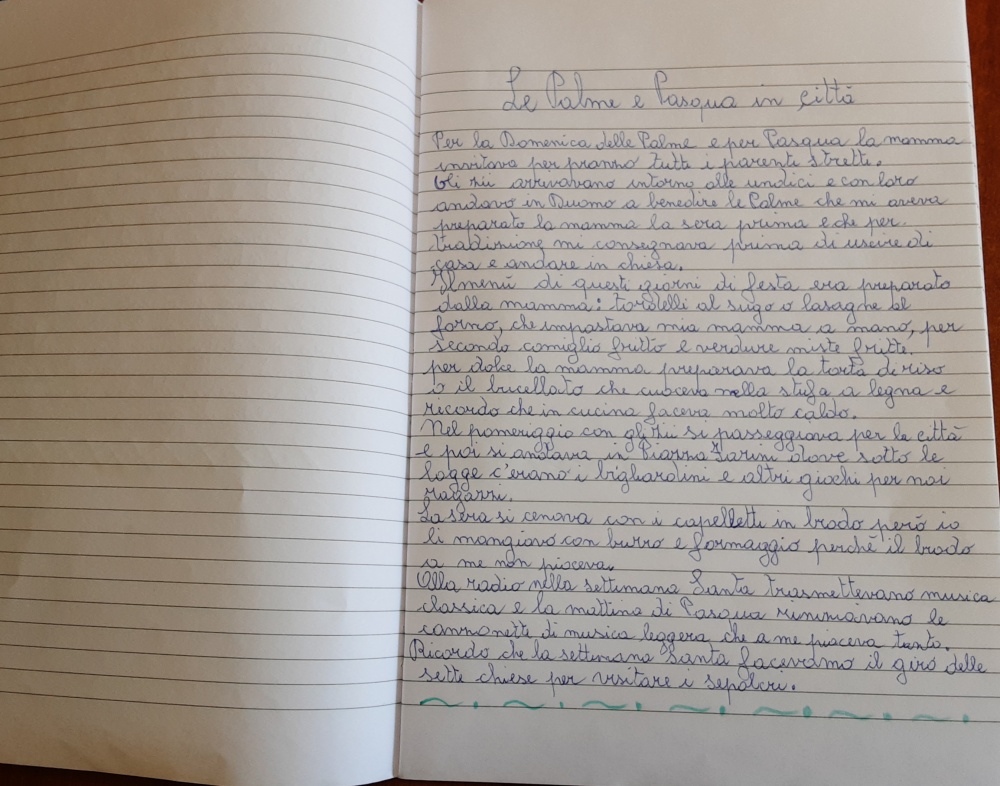 Le Palme e Pasqua in città
Per la Domenica delle Palme e per Pasqua la mamma
invitava per pranzo tutti i parenti stretti.
Gli zii arrivavano intorno alle undici e con loro
andavo in Duomo a benedire le Palme che mi aveva
preparato la mamma la sera prima e che per
tradizione mi consegnava prima di uscire di
casa e andare in chiesa.
Il menù di questi giorni di festa era preparato
dalla mamma: tordelli al sugo o lasagne al
forno, che impastava mia mamma a mano, per
secondo coniglio fritto e verdure miste fritte.
per dolce la mamma preparava la torta di riso
o il buccellato che cuoceva nella stufa a legna e
ricordo che in cucina faceva molto caldo.
Nel pomeriggio con gli zii si passeggiava per la città
e poi si andava in Piazza Farini dove sotto le
logge c'erano i bigliardini e altri giochi per noi
ragazzi.
La sera si cenava con i capelletti in brodo però io
li mangiavo con burro e formaggio perchè il brodo
a me non piaceva.
Alla radio nella settimana Santa trasmettevano musica
classica e la mattina di Pasqua rinniziavano le
canzonette di musica leggera che a me piaceva tanto.
Ricordo che la settimana Santa facevamo il giro delle
sette chiese per visitare i sepolcri.